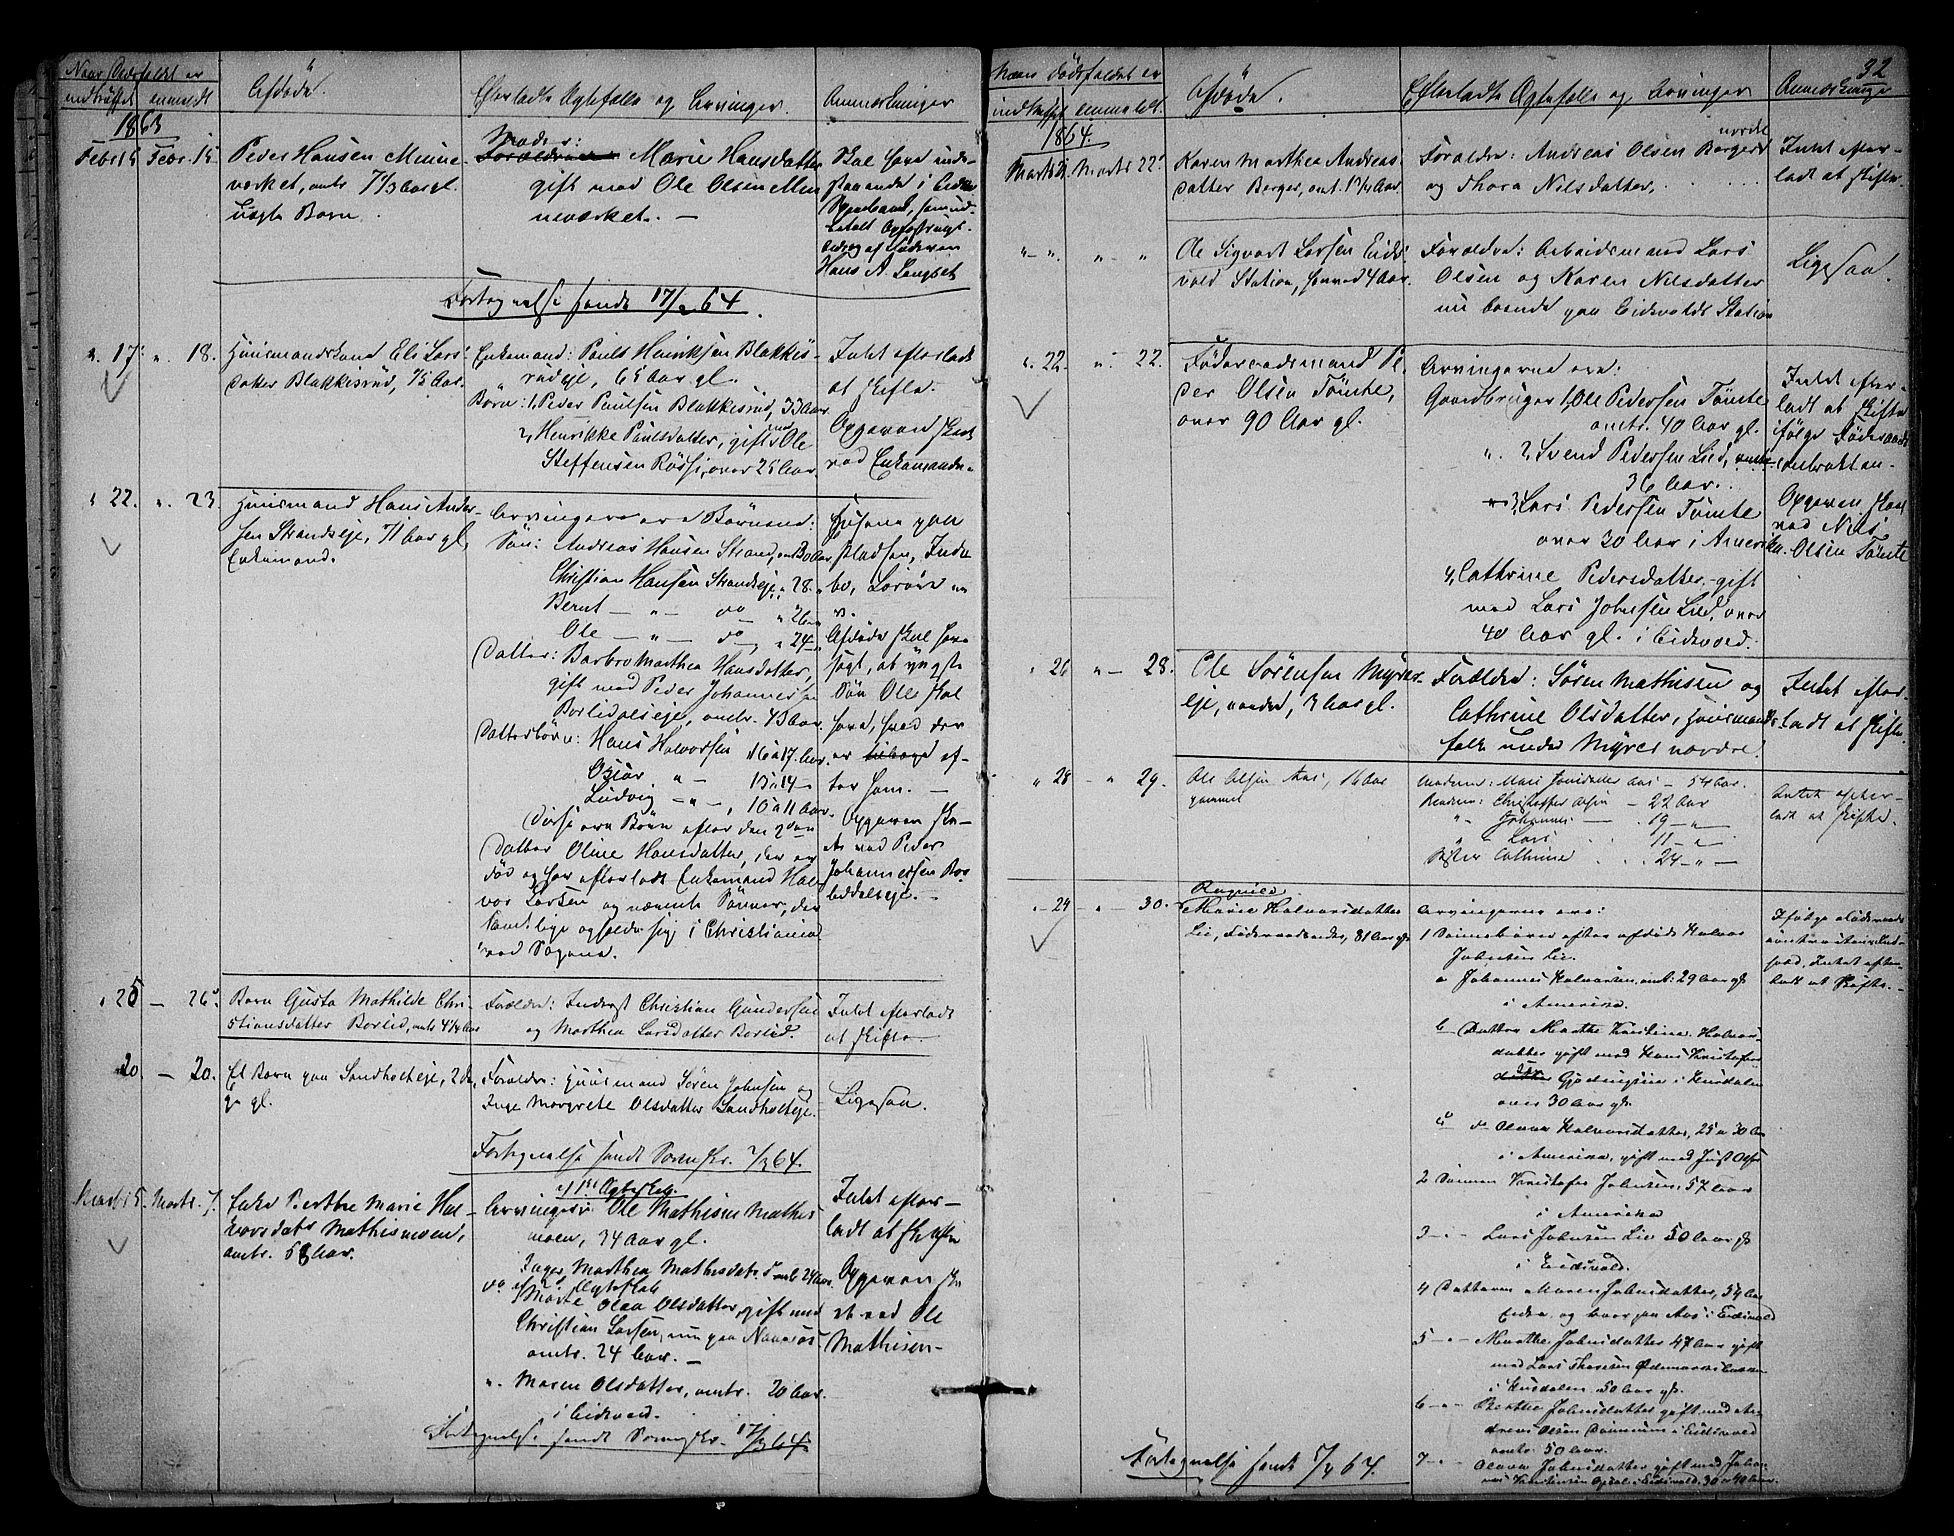 Naar Dødsfaldet er
indtruffet anmeldt
Afdøde.
Efterladte Ægtefælle og Arvinger
Anmærkninger
1863
Febr 15 Febr. 15
Peder Hansen Minne-
værket, omtr 7 1/3 Aar gl.
Uægte Barn
Moder:
Forældrene Marie Hansdatter
gift med Ole Olsen Min
neværket. —
Skal have inde-
staaende i Eids
Sparebank,
Hans A. Langset
Fortegnelse sendt 17/2 64.
" 17. " 18.
Huusmandskone Eli Lars-
datter Blakkisrud, 75 Aar.
Enkemand: Pauls Henriksen Blakkis-
rudeje, 65 Aar gl.
Børn: 1, Peder Paulsen Blakkisrud, 33 Aar
2, Henrikke Paulsdatter, gift med Ole
Steffensen Røssi, over 25 Aar.
Intet efterladt
at skifte.
Opgaven skeet
ved Enkemanden
" 22. " 23.
Huusmand Hans Ander-
sen Strandseje, 71 Aar gl,
Enkemand.
Arvingere ere Børnene:
Søn: Andreas Hansen Strand, 30 Aar
Christian Hansen Strandseje " 28. "
Bernt — " — do " 26 "
Ole — " — do " 24 "
Datter: Barbro Marthea Hansdatter,
gift med Peder Johannessen
Borlidalseje, omtr. 43 Aar.
Datterbörn: Hans Halvorsen 16 a 17. Aar.
" — 13 a 14 —
Ludvig — " — , 10 a 11 Aar.
Disse ere Børn efter den
Datter Oline Hansdatter, der er
død og har efterladt Enkemand Hal-
vor Larsen og nævnte Sønner, der
samtlige opholde sig i Christiania
ved Sagene.
Husene paa
Pladsen, Indbo, Løsøre
Afdøde skal have
sagt, at yngste
Søn Ole skal
have, hvad der
er tilbage ef-
ter ham. —
Opgaven ske-
et ved Peder
Johannessen Bor-
liddalseje. —
" 25 — 26.
Barn Gusta Mathilde Chri-
stiansdatter Borlid, omtr 4 1/4 Aar
Forældre: Inderst Christian Gundersen
og Marthea Larsdatter Borlid.
Intet efterladt
at skifte.
20. — 20.
Et Barn paa Sandholteje, 2 da
ge gl.
Forældre: Huusmand Søren Johnsen og
Inge Margrete Olsdatter Sandholteje.
Ligesaa.
Fortegnelse sendt Sorenskr. 7/3 64.
Marts 5. Marts. 7.
Enke Berthe Marie Hal-
vorsdatr Mathismoen,
omtr. 58 Aar.
af 1ste Ægteskab
Arvinger: Ole Mathisen Mathis
moen, 34 Aar gl.
Inger Marthea Mathisdatr omtr. 24 Aar
do af 2 Ægteskab
Marte Olea Olsdatter, gift med
Christian Larsen, nu paa
omtr. 24 Aar. —
". Maren Olsdatter, omtr. 20 Aar.
i Eidsvold.
Intet efter-
ladt at skifte
Opgaven ske
et ved Ole
Mathisen —
Fortegnelse sendt Sorenskr. 17/3 64.
32
Naar Dødsfaldet er
indtruffet anmeldt.
Afdøde.
Efterladte Ægtefælle og Arvinger
Anmærkninger
1864.
Marts 21. Marts 22.
Karen Marthea Andreas-
datter Berger, omt. 1 3/4 Aar.
Forældre: Andreas Olsen Berger nordre
og Thora Nilsdatter.
Intet efter-
ladt at skifte.
" — " " — "
Ole Sigvart Larsen Eids-
vold Station, henved 4 Aar.
Forældre: Arbeidsmand Lars
Olsen og Karen Nilsdatter
nu boende paa Eidsvold Station
Ligesaa.
" 22. " 22.
Føderaadsmand Pe-
der Olsen Tömte,
over 90 Aar gl.
Arvingerne ere:
Gaardbruger 1, Ole Pedersen Tömte
omtr. 40 Aar gl.
". 2, Svend Pedersen Lied,
36 Aar.
" 3, Lars Pedersen Tömte
over 30 Aar i Amerika.
4, Cathrine Pedersdatter, gift
med Lars Johnsen Lied, over
40 Aar gl. i Eidsvold.
Intet efter-
ladt at skifte
ifølge Føderaads
contrakten.
Opgaven skeet
ved Nils
Olsen Tömte
" 26 " — 28.
Ole Sörensen Myrer-
eje, nordre, 3 Aar gl.
Forældre: Sören Mathisen og
Cathrine Olsdatter, Huusmands-
folk under Myrer nordre.
Intet efter-
ladt at skifte.
" 28 — " 29.
Ole Olsen Aas, 16 Aar
gammel
Moderen: Mari Aas — 54 Aar.
Brødrene: Christoffer Olsen — 22 Aar
" Johannes — . 19 — "
" Lars . . 11 — "
Søster Cathrine . . 24 — " —
Intet efter-
ladt at skifte.
" — 24 — " — 30.
Ragnild
Marie Halvorsdatter
Lie, Føderaadsenke, 81 Aar gl.
Arvingerne ere:
1 Sønnebörn efter afdøde Halvor
Johnsen Lie.
a Johannes Halvorsen, omt: 29 Aar gl.
i Amerika.
b Datter Marthe Kristine Halvors-
datter gift med Hans Kristofers-
i Hurdalen
over 30 Aar gl.
c do Olava Halvorsdatter, 25 a 30 Aar
i Amerika, gift med Just Olsen
2 Sønnen Kristofer Johnsen, 57 Aar
i Amerika
3 — " — Lars Johnsen Lie 50 Aar gl
i Eidsvold.
4 Datteren Maren Johnsdatter, 54 Aar
Enke og boer paa Aas i Eidsvold
5 — " — Marthe Johnsdatter 47 Aar gift
med Lars
i Hurdalen 50 Aar gl.
6 — " — Berthe Johnsdatter gift med An-
dreas Olsen i Eidsvold
omtr. 50 Aar.
7 — " — Olava Johnsdatter gift med Johan-
nes Kristensen i Eidsvold, 30 a 40 Aar.
Ifølge Føderaads
Intet efter-
ladt at skifte. —
Fortegnelse sendt 7/4 64.